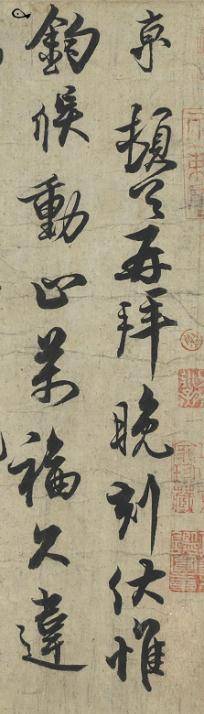 京頓首再拜晚刻伏惟
鈞候動止萬福久違